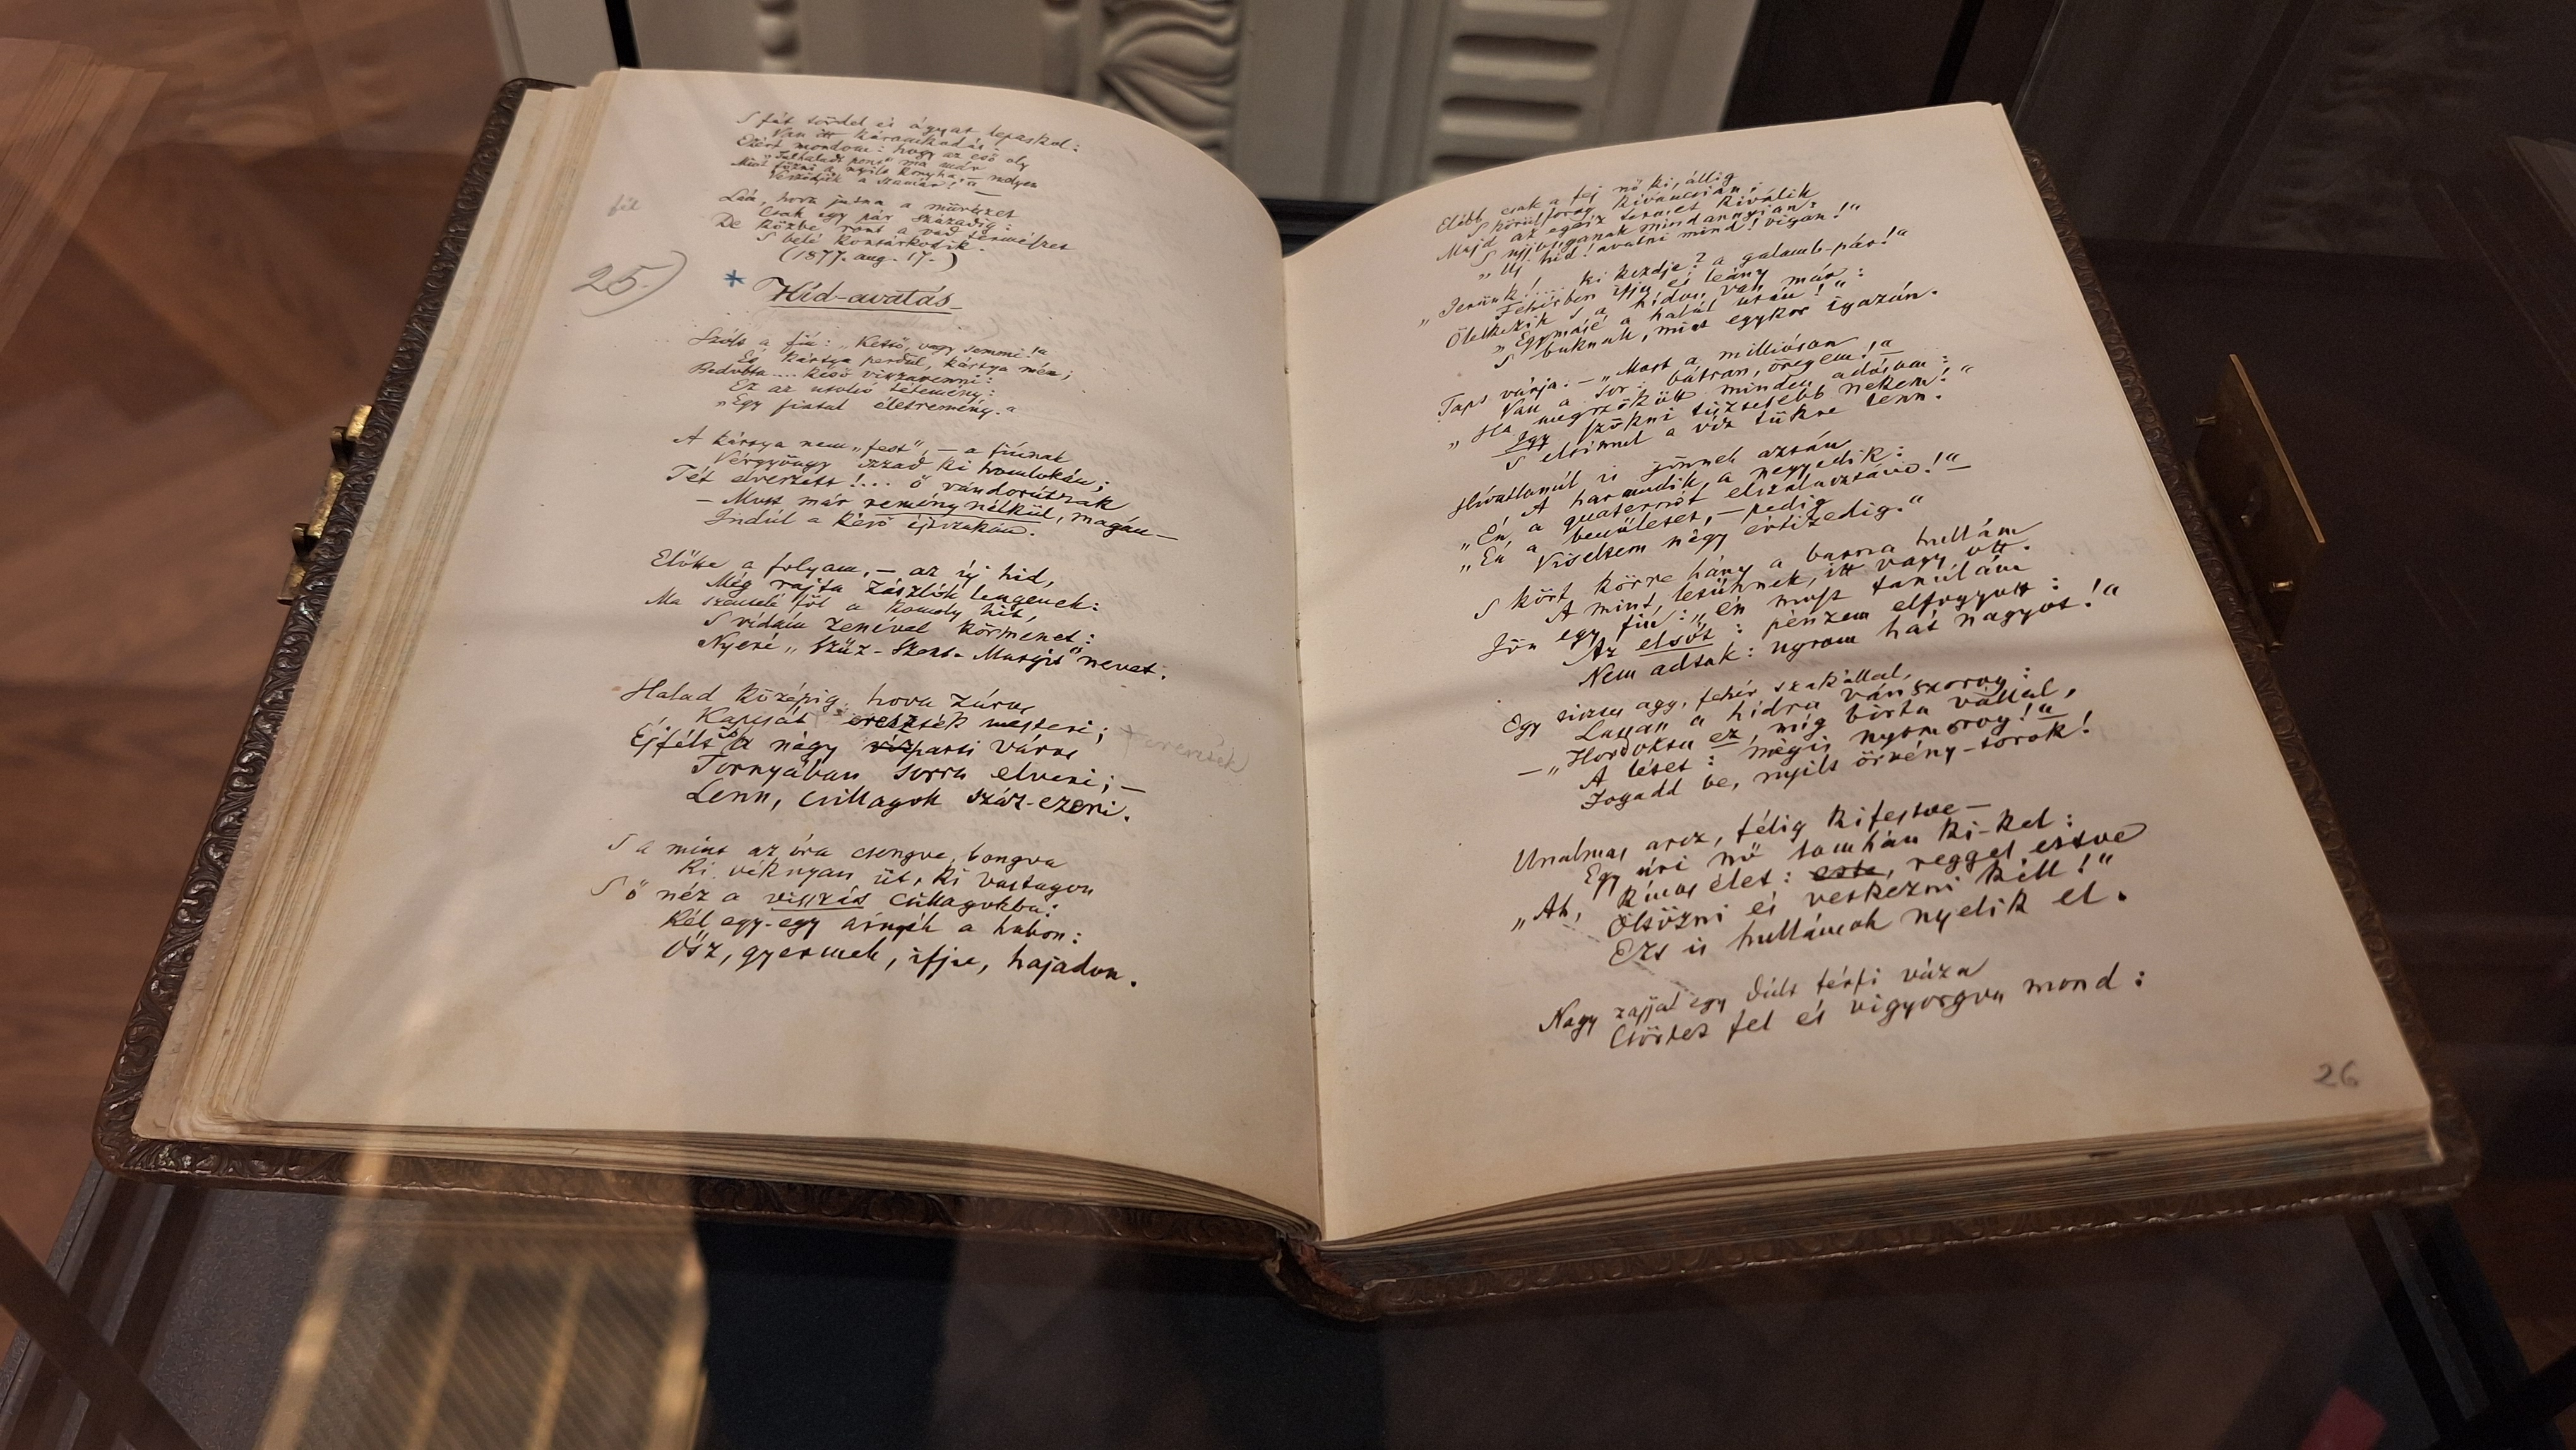 S fát tördel és ágyat lepaskol:
Van itt káromkodás:
Ezért mondom: hogy az eső oly
ma már
Mint főzni a nyílt konyha, – melyen
Lám, hova jutna a művészet
Csak egy pár századig:
De közbe ront a vad természet
S belé kontárkodik.
(1877. aug. 17.)
fél
25.)
* Híd-avatás
Szólt a fiú: „Kettő, vagy semmi!"
És kártya perdűl, kártya mén;
Bedobta.... késő visszavenni:
Ez az utolsó tétemény:
„Egy fiatal életremény."
A kártya nem „fest", – a fiúnak
Vérgyöngy izzad ki homlokán;
Tét elveszett!... ő vándorútnak
– Most már remény nélkül, magán –
Indúl a késő éjtszakán.
Előtte a folyam, – az új híd,
Még rajta zászlók lengenek:
Ma szentelé föl a komoly hit,
S vidám zenével körmenet:
Nyeré „Szűz-Szent-Margit" nevet.
Halad középig, hova záros
Kapcsát ereszték mesteri; eresztek
Éjfélt is a négy vízparti város
Tornyában sorra elveri; –
Lenn, csillagok száz-ezeri.
S a mint az óra csengve, bongva
Ki véknyan üt, ki vastagon
S ő néz a visszás csillagokba:
Kél egy-egy árnyék a habon:
Ősz, gyermek, ifju, hajadon.
Előbb csak a fej nő ki, állig
S körülforog kiváncsian;
Majd az egész termet kiválik
S ujjonganak mindannyian:
„Uj híd! avatni mind! vigan!"
„Jerünk!.... ki kezdje? a galamb-pár!"
Fehérben ifju és leány
Ölelkezik s a hídon van már:
„Egymásé a halál után!"
S buknak, mint egykor igazán.
Taps várja. – „Most a milliósan
Van a sor: bátran, öregem!"
„Ha megszökült minden adósom:
Igy szökni tisztesebb nekem!"
S elsimul a víz tükre lenn.
Hivatlanúl is jönnek aztán
A harmadik, a negyedik:
„Én, a quaternót elszalasztám!" –
„Én a becsületet, – pedig
Viseltem négy évtizedig."
S kört körre hány a barna hullám
A mint lesűhnek, itt vagy ott.
Jön egy fiú: „én most tanúlám
Az elsőt: pénzem elfogyott:
Nem adtak: ugrom hát nagyot!"
Egy tisztes agg, fehér szakállal,
Lassan a hídra vánszorog:
– „Hordoztam ez, míg birta vállal,
A létet: mégis nyomorog!"
Fogadd be, nyílt örvény-torok!
Unalmas arcz, félig kifestve –
Egy úri nő lomhán ki-kel:
„Ah, kínos élet: este, reggel, estve
Öltözni és vetkezni kell!"
Ezt is hullámok nyelik el.
Nagy zajjal egy dúlt férfi váza
Csörtet fel és vigyorgva mond:
26